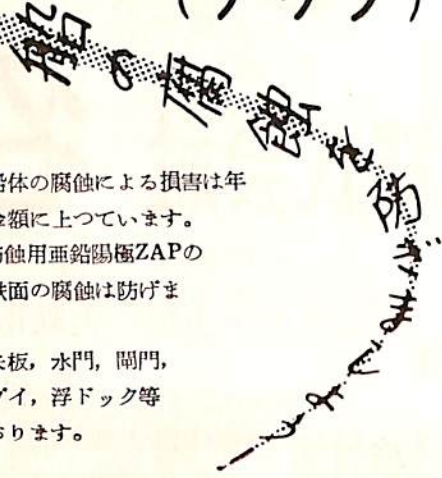 船の腐蝕を防ぎましょう
体の腐蝕による損害は年
金額に上つています。
蝕用亜鉛陽極ZAPの
面の腐蝕は防げま
板，水門，閘門，
イ，浮ドック等
ります。